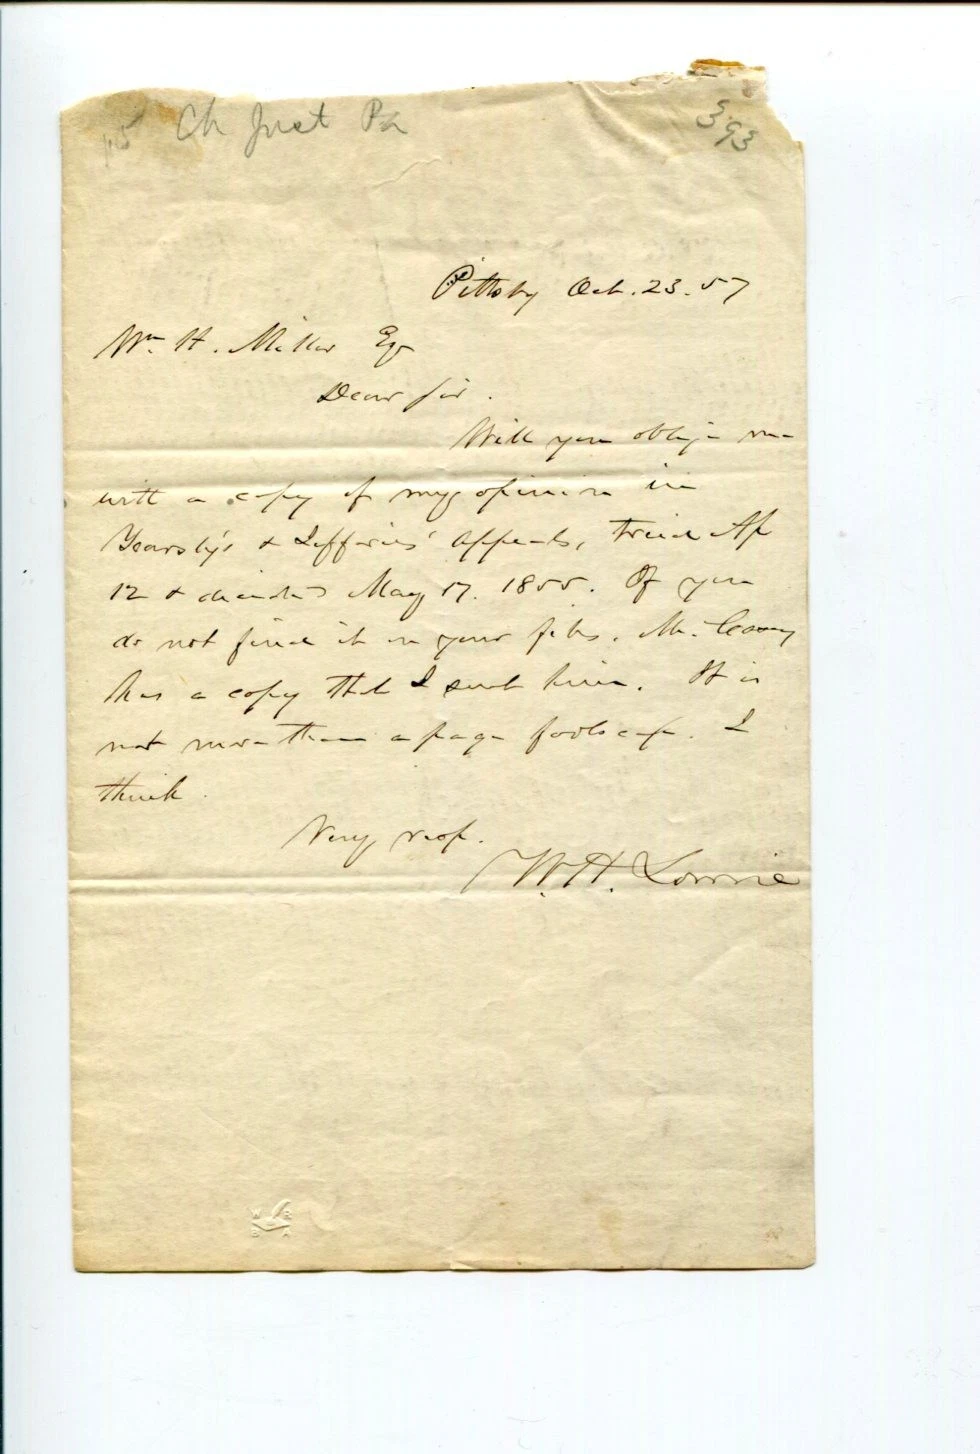 Ch Just Pa
393
Pittsbg Oct. 23. 57
Wm. H. Miller Esq
Dear sir.
Will you oblige me
with a copy of my opinion in
Yearsly's & Jefferies' appeals, tried Ap
12 & decided May 17. 1855. If you
do not find it in your files. Mr. Casey
has a copy that I sent him. It is
not more than a page foolscap. I
think.
Very resp.
W. H. Lowrie
W R
B A